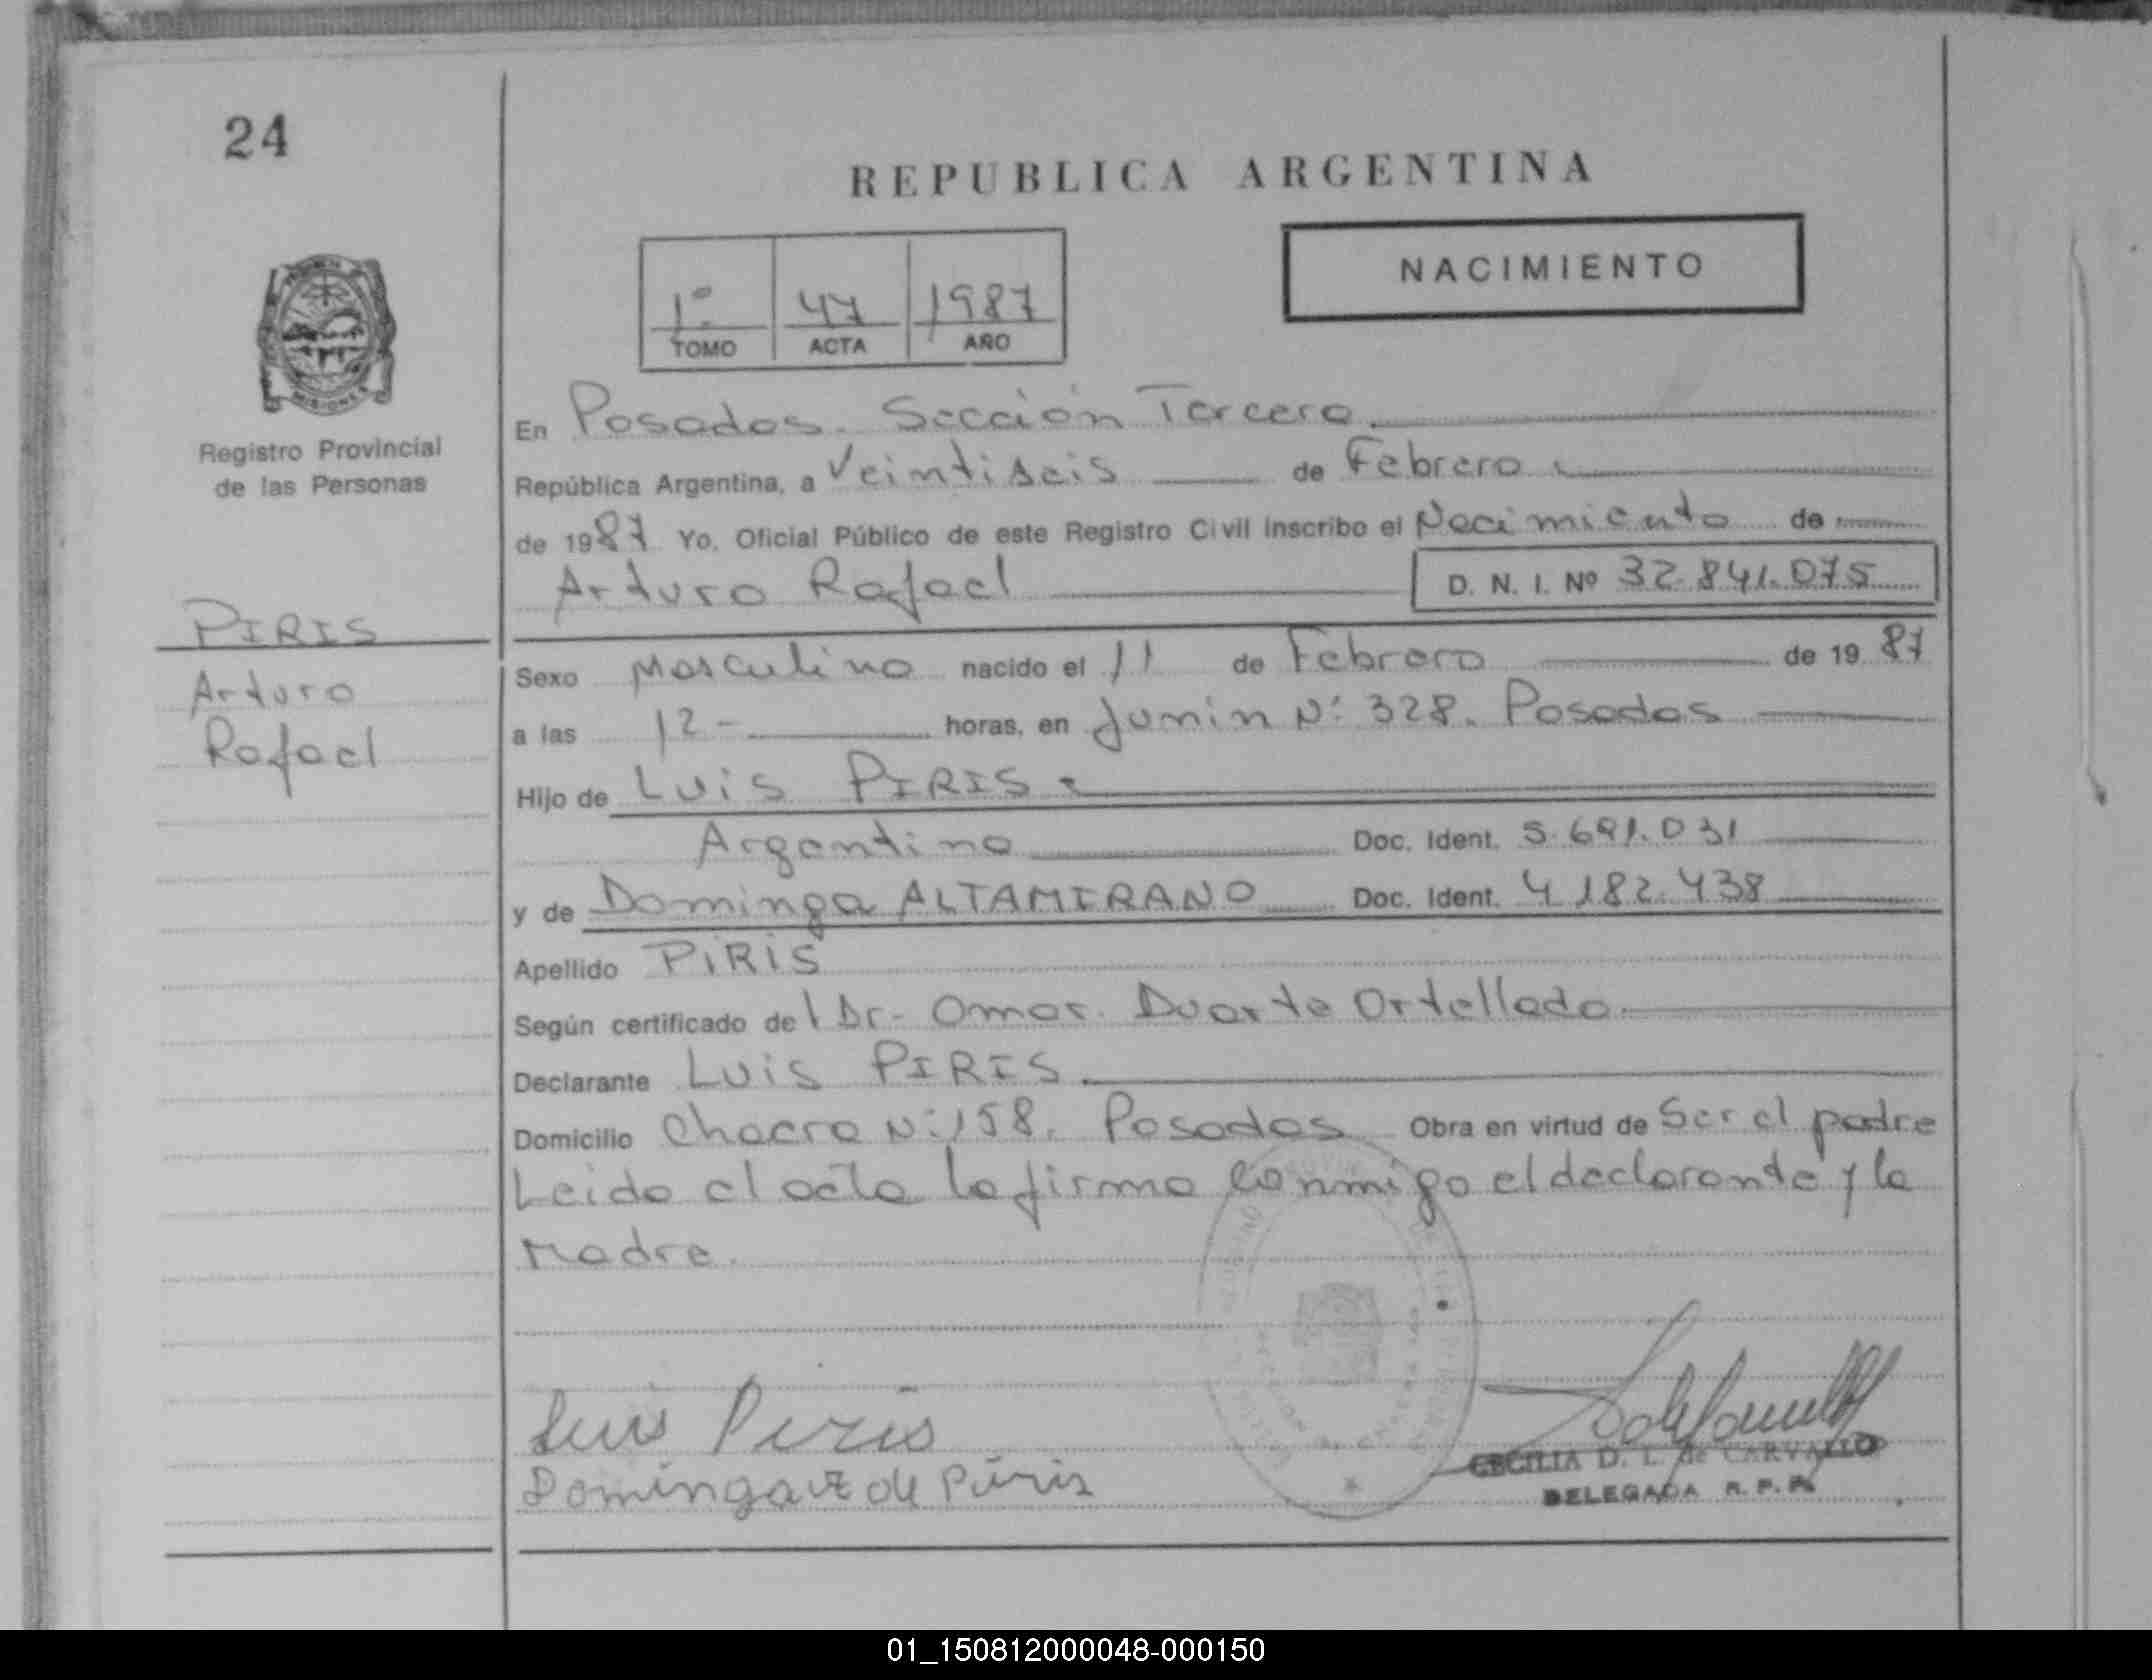 24
REPUBLICA ARGENTINA
NACIMIENTO
1º 47 1987
TOMO ACTA AÑO
MISIONES
Registro Provincial
de las Personas
PIRIS
Arturo
Rafael
En Posadas. Sección Tercera.
República Argentina, a Veintiseis de Febrero
de 1987 Yo, Oficial Público de este Registro Civil inscribo el Nacimiento de
Arturo Rafael D. N. I. Nº 32.841.075
Sexo Masculino nacido el 11 de Febrero de 1987
a las 12- horas, en Junin Nº 328. Posadas
Hijo de Luis PIRIS
Argentino Doc. Ident. 5.691.031
y de Dominga ALTAMIRANO Doc. Ident. 4.182.438
Apellido PIRIS
Según certificado del Dr. Omar Duarte Ortellado
Declarante Luis PIRIS.
Domicilio Chacra Nº 158. Posadas Obra en virtud de Ser el padre
Leida el acta la firma conmigo el declarante y la
Madre.
Luis Piris
Dominga de Piris
CECILIA D. L. de CARVALLO
DELEGADA R. P. P.
01_150812000048-000150